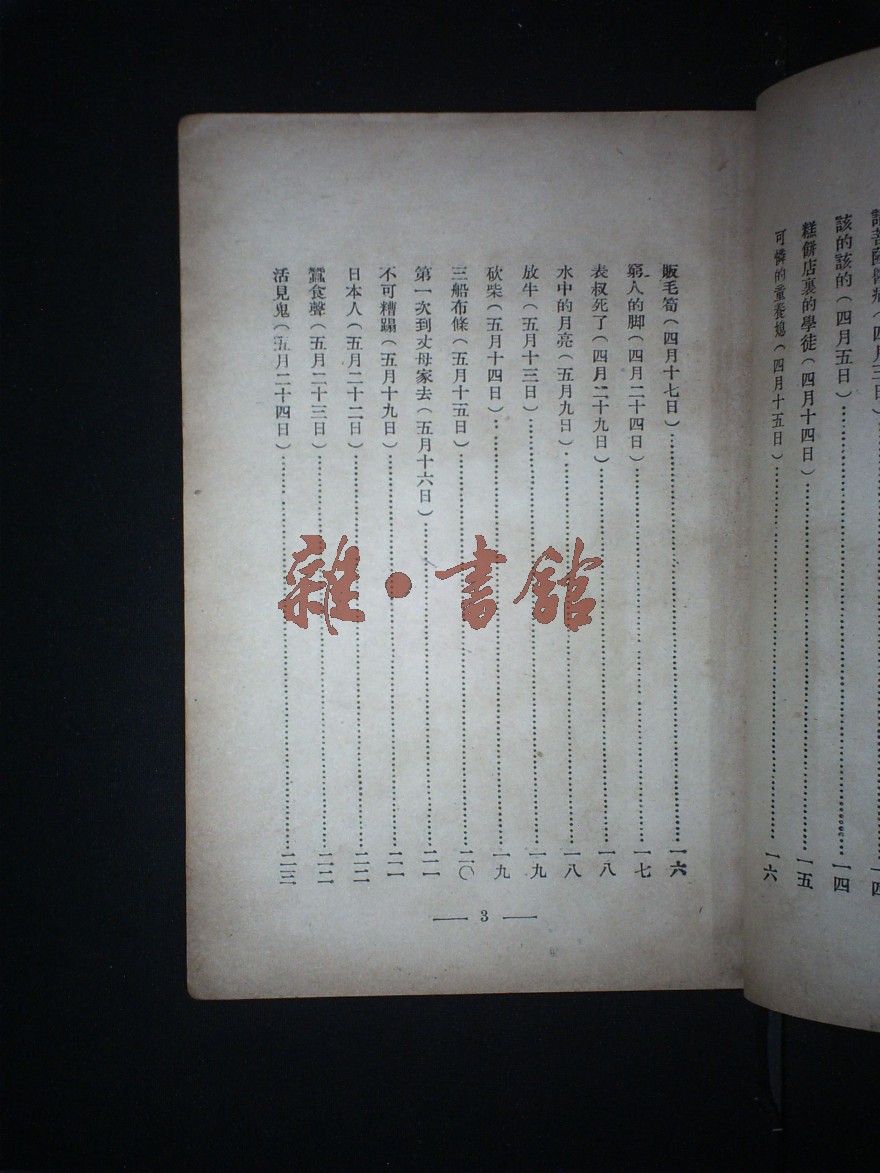 該的該的(四月五日)……一四
糕餅店裏的學徒(四月十四日)……一五
可憐的童養媳(四月十五日)……一六
販毛筍(四月十七日)……一六
窮人的脚(四月二十四日)……一七
表叔死了(四月二十九日)……一八
水中的月亮(五月九日)……一八
放牛(五月十三日)……一九
砍柴(五月十四日)……一九
三船布條(五月十五日)……二〇
第一次到丈母家去(五月十六日)……二一
不可糟蹋(五月十九日)……二一
日本人(五月二十二日)……二二
蠶食聲(五月二十三日)……二二
活見鬼(五月二十四日)……二三
3
雜·書館